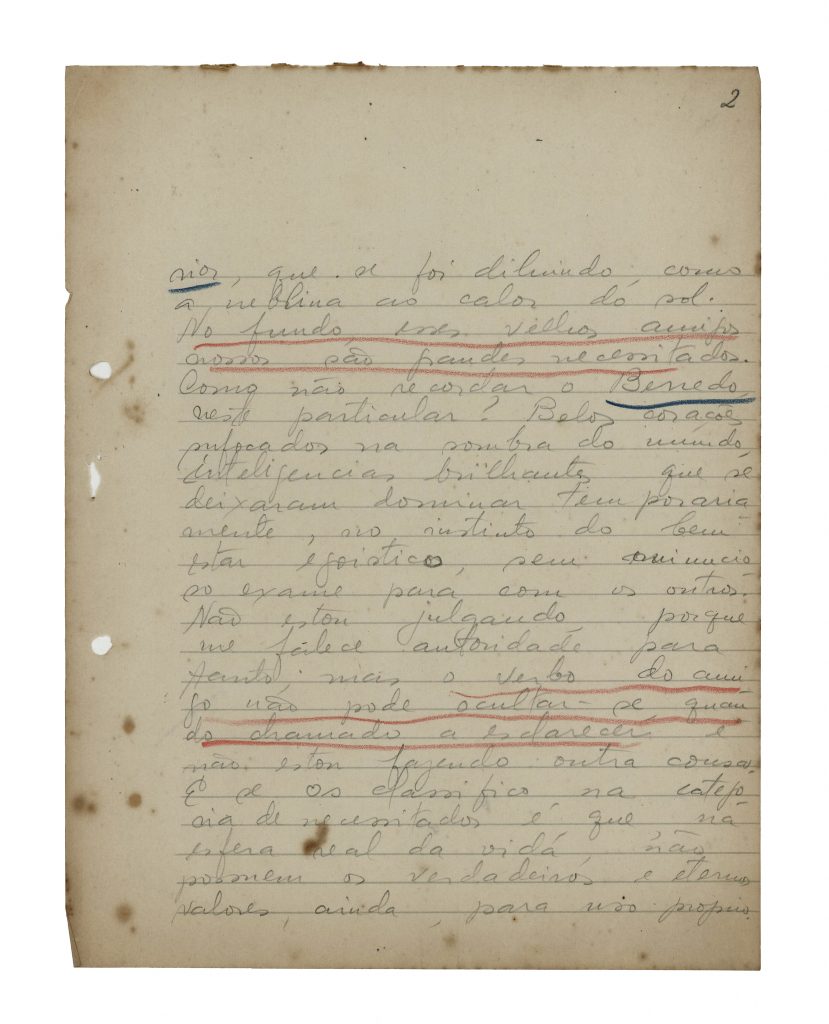 2
rior, que se foi diluindo, como
a neblina ao calor do sol.
No fundo, esses velhos amigos
nossos são grandes necessitados.
Como não recordar o Benedo,
neste particular? Belos corações
sufocados na sombra do mundo,
inteligencias brilhantes que se
deixaram dominar temporaria
mente, no instinto do bem
estar egoistico, sem minucio
so exame para com os outros.
Não estou julgando, porque
me falece autoridade para
tanto, mas o verbo do ami
go não pode ocultar-se quan
do chamado a esclarecer e
não estou fazendo outra cousa.
E se os classifico na catego
ria de necessitados é que na
esfera real da vida, não
possuem os verdadeiros e eternos
valores, ainda, para uso proprio.